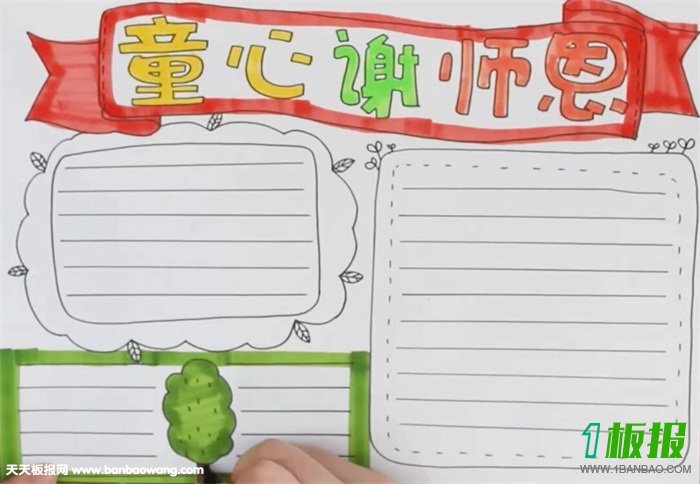 童心谢师恩
1板报
WWW.1BANBAO.COM
天天板报网 www.banbaowang.com